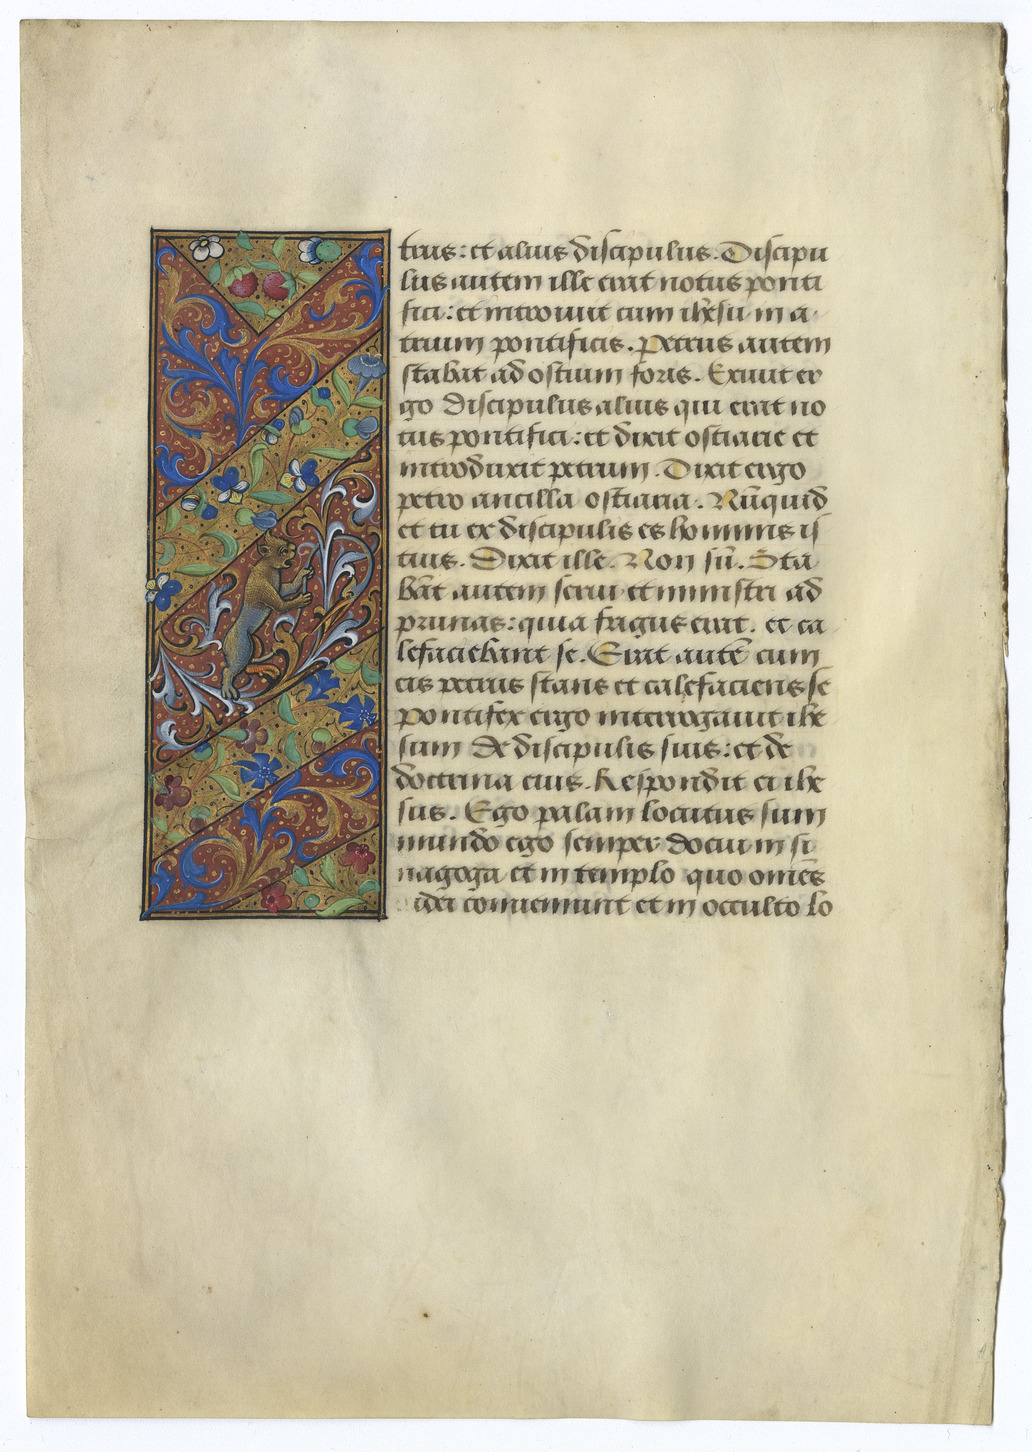 trus: et alius discipulus. Discipu
lus autem ille erat notus ponti
fici: et introiuit cum ihesu in a
trium pontificis. Petrus autem
stabat ad ostium foris. Exiuit er
go discipulus alius qui erat no
tus pontifici: et dixit ostiarie et
introduxit petrum. Dixit ergo
petro ancilla ostiaria. Nūquid
et tu ex discipulis es hominis is
tius. Dixit ille. Non sū. Sta
bāt autem serui et ministri ad
prunas: quia frigus erat. et ca
lefaciebant se. Erat autē cum
eis petrus stans et calefaciens se
pontifex ergo interrogauit ihe
sum de discipulis suis: et de
doctrina eius. Respondit ei ihe
sus. Ego palam locutus sum
mundo ego semper docui in si
nagoga et in templo quo omēs
iudei conueniunt et in occulto lo